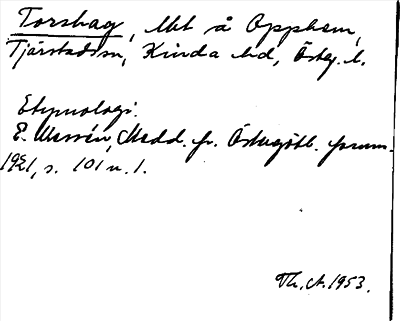 Torshag, lht å Opphem,
Tjärstad sn, Kinda hd, Östg. l.
Etymologi:
E. Wessén, Medd. fr. Östergötl. fornm.
1921, s. 101 n. 1.
Th. A. 1953.